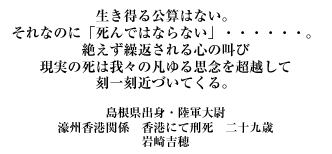 生き得る公算はない。
それなのに「死んではならない」・・・・・・。
絶えず繰返される心の叫び
現実の死は我々の凡ゆる思念を超越して
刻一刻近づいてくる。
島根県出身・陸軍大尉
濠州香港関係　香港にて刑死　二十九歳
岩崎吉穂